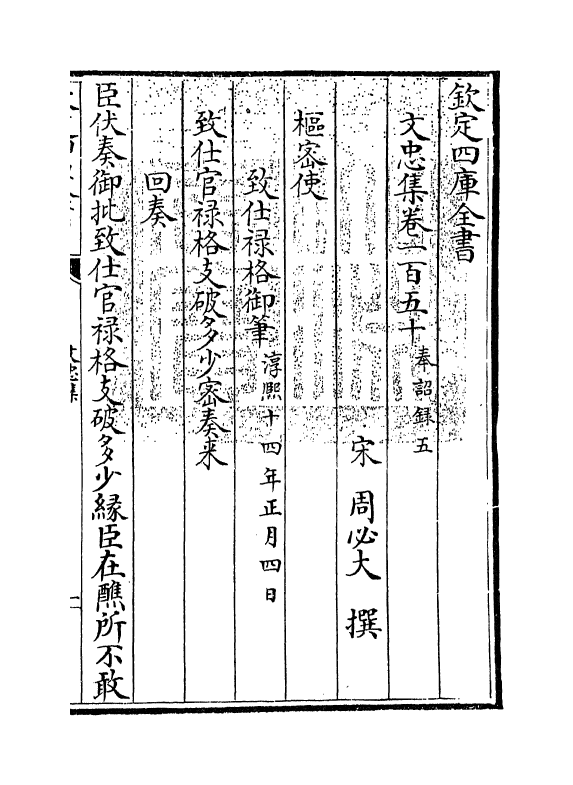 欽定四庫全書
文忠集卷一百五十 奉詔録五
宋 周必大 撰
樞密使
致仕禄格御筆 淳熙十四年正月四日
致仕官禄格支破多少密奏来
回奏
臣伏奏御批致仕官禄格支破多少縁臣在醮所不敢